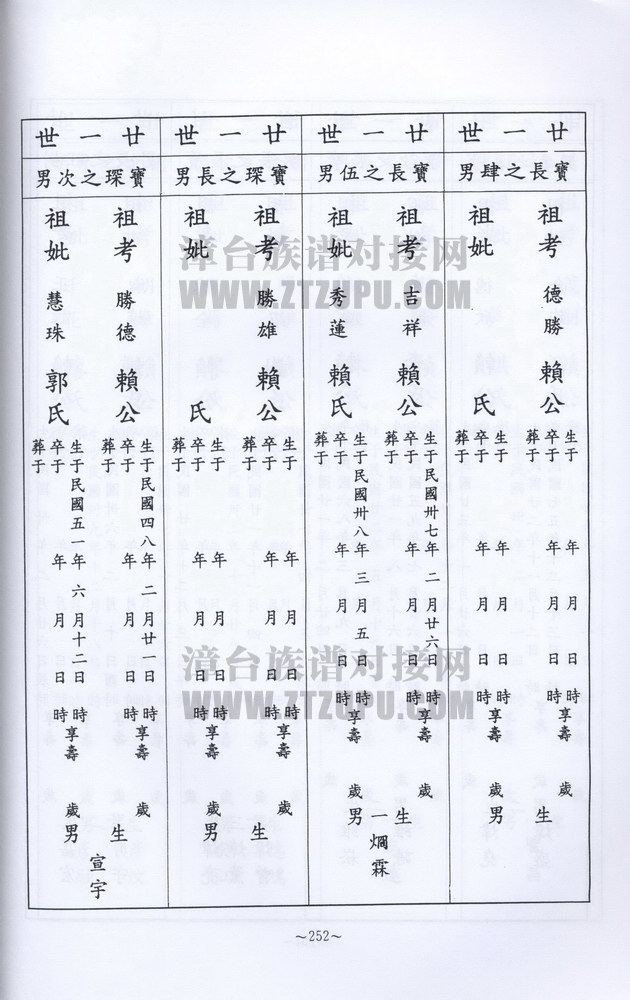 廿一世
寶長之肆男
祖考 德勝 賴公
生于 年 月 日 時
卒于 年 月 日 時 享壽 歲
葬于
祖妣 氏
生于 年 月 日 時
卒于 年 月 日 時 享壽 歲
葬于
生 男
廿一世
寶長之伍男
祖考 吉祥 賴公
生于民國卅七年 二月廿六日 時
卒于 年 月 日 時 享壽 歲
葬于
祖妣 秀蓮 賴氏
生于民國卅八年 三月五日 時
卒于 年 月 日 時 享壽 歲
葬于
生一男
爓霖
廿一世
寶琛之長男
祖考 勝雄 賴公
生于 年 月 日 時
卒于 年 月 日 時 享壽 歲
葬于
祖妣 氏
生于 年 月 日 時
卒于 年 月 日 時 享壽 歲
葬于
生 男
廿一世
寶琛之次男
祖考 勝德 賴公
生于民國四八年 二月廿一日 時
卒于 年 月 日 時 享壽 歲
葬于
祖妣 慧珠 郭氏
生于民國五一年 六月十二日 時
卒于 年 月 日 時 享壽 歲
葬于
生 男
宣宇
漳台族谱对接网
WWW.ZTZUPU.COM
漳台族谱对接网
WWW.ZTZUPU.COM
~252~